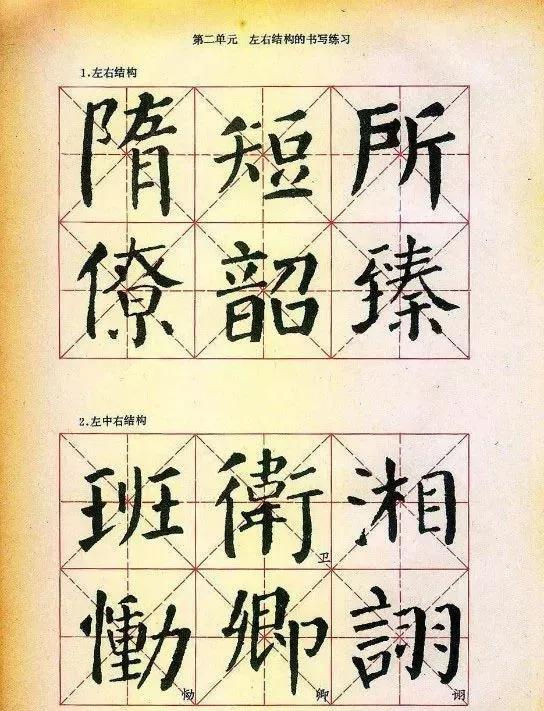 第二单元 左右结构的书写练习
1.左右结构
隋短所
僚韶臻
2.左中右结构
班衛湘
卫
慟卿詡
恸 卿 诩